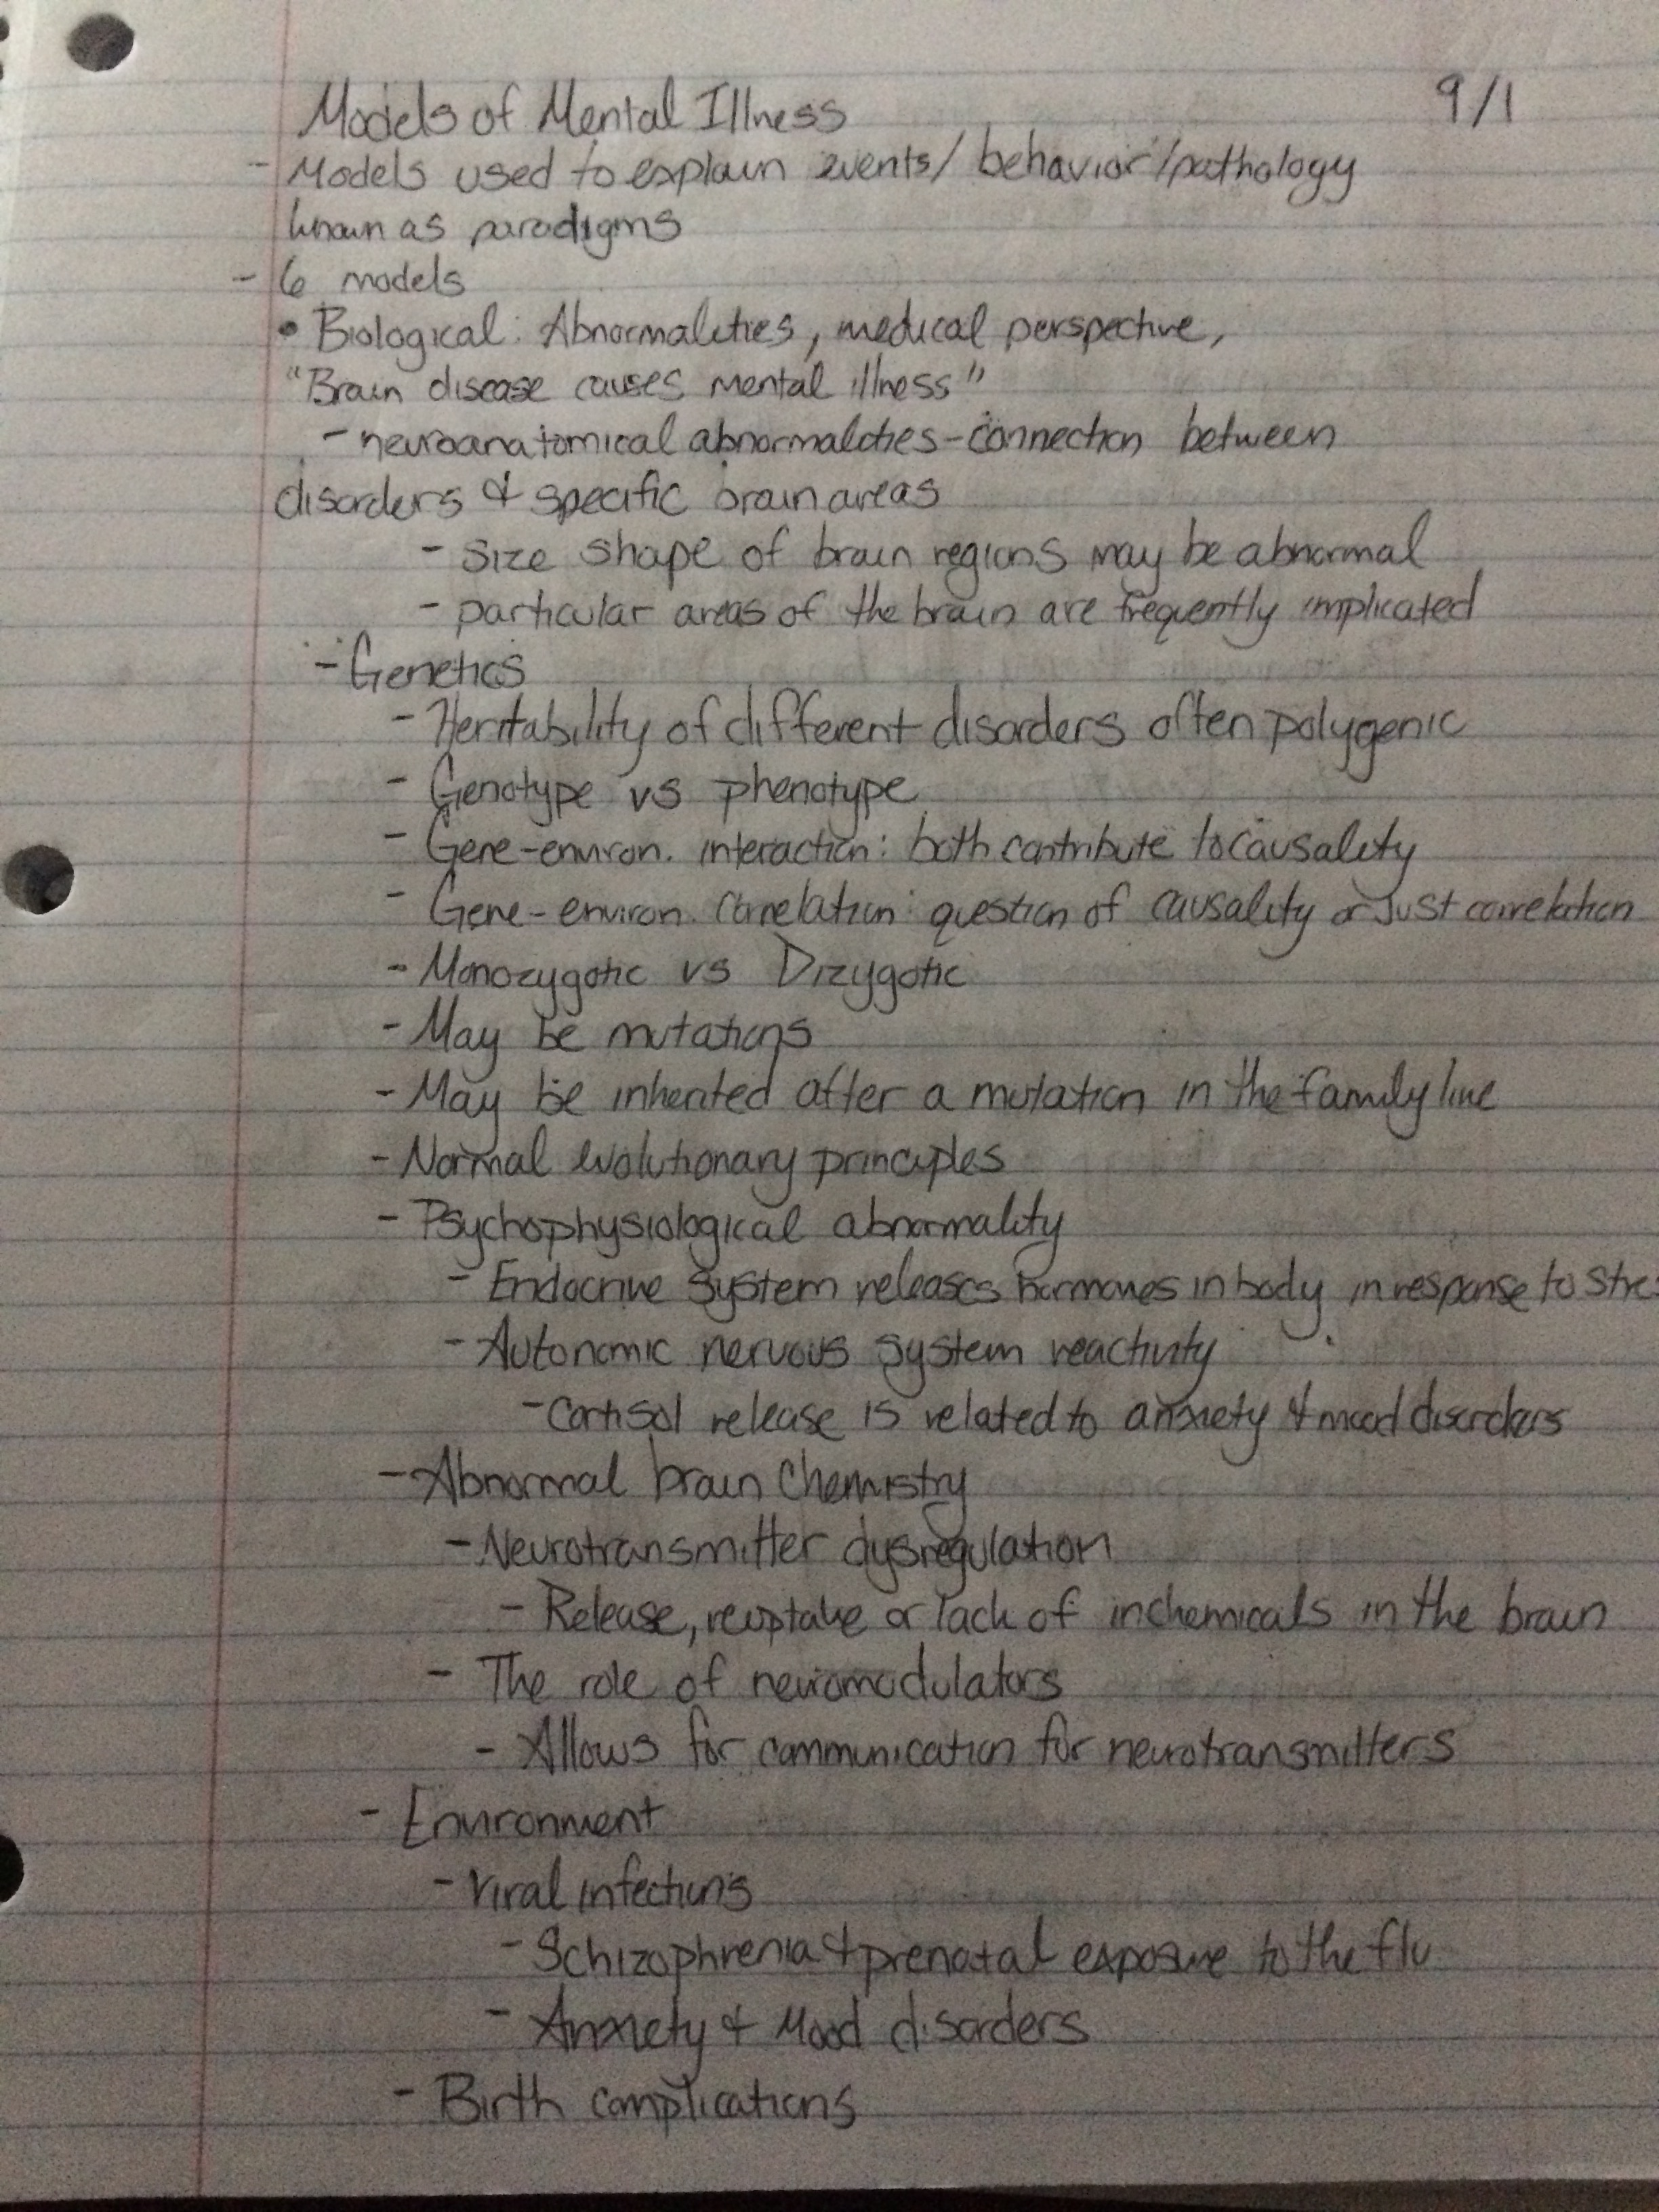 Models of Mental Illness 9/1
- Models used to explain events/ behavior/pathology
known as paradigms
- 6 models
• Biological: Abnormalities, medical perspective,
"Brain disease causes mental illness"
- neuroanatomical abnormalities - connection between
disorders & specific brain areas
- size shape of brain regions may be abnormal
- particular areas of the brain are frequently implicated
- Genetics
- Heritability of different disorders often polygenic
- Genotype vs phenotype
- Gene-environ. interaction: both contribute to causality
- Gene-environ. correlation: question of causality or just correlation
- Monozygotic vs Dizygotic
- May be mutations
- May be inherited after a mutation in the family line
- Normal evolutionary principles
- Psychophysiological abnormality
- Endocrine system releases hormones in body in response to stres
- Autonomic nervous system reactivity
- Cortisol release is related to anxiety & mood disorders
- Abnormal brain chemistry
- Neurotransmitter dysregulation
- Release, reuptake or lack of inchemicals in the brain
- The role of neuromodulators
- Allows for communication for neurotransmitters
- Environment
- Viral infections
- Schizophrenia & prenatal exposure to the flu
- Anxiety & Mood disorders
- Birth complications